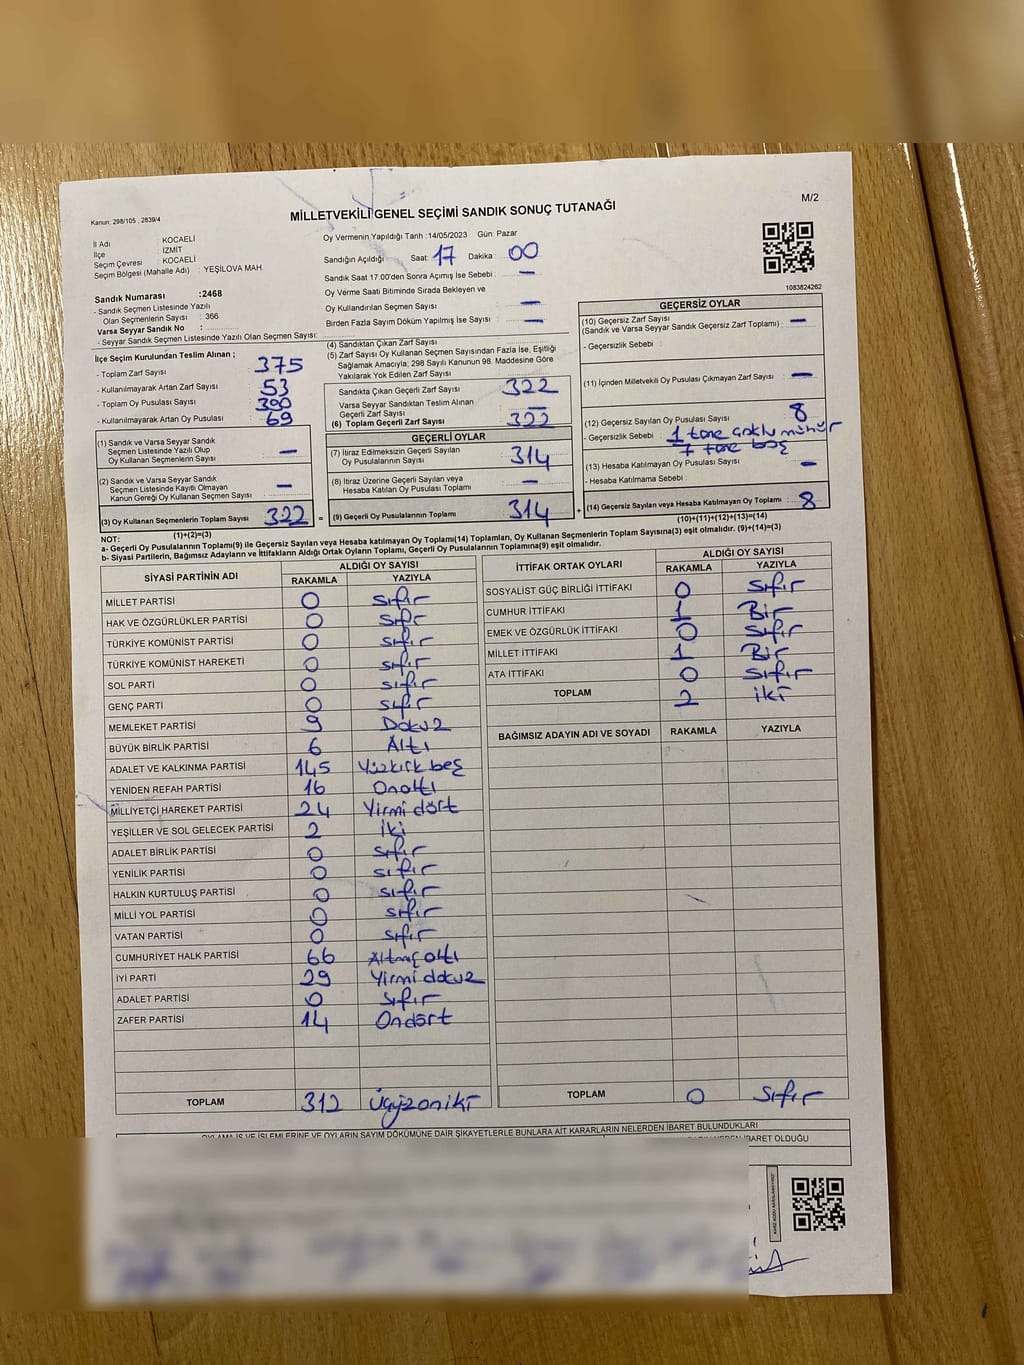 M/2
Kanun: 298/105 , 2839/4
MİLLETVEKİLİ GENEL SEÇİMİ SANDIK SONUÇ TUTANAĞI
İl Adı KOCAELİ
İlçe İZMİT
Seçim Çevresi KOCAELİ
Seçim Bölgesi (Mahalle Adı) : YEŞİLOVA MAH.
Sandık Numarası :2468
- Sandık Seçmen Listesinde Yazılı
Olan Seçmenlerin Sayısı : 366
Varsa Seyyar Sandık No :
- Seyyar Sandık Seçmen Listesinde Yazılı Olan Seçmen Sayısı:
Oy Vermenin Yapıldığı Tarih :14/05/2023 Gün: Pazar
Sandığın Açıldığı Saat: 17 Dakika : 00
Sandık Saat 17:00'den Sonra Açımış İse Sebebi : —
Oy Verme Saati Bitiminde Sırada Bekleyen ve
Oy Kullandırılan Seçmen Sayısı —
Birden Fazla Sayım Döküm Yapılmış İse Sayısı —
1083824262
İlçe Seçim Kurulundan Teslim Alınan ;
- Toplam Zarf Sayısı 375
- Kullanılmayarak Artan Zarf Sayısı 53
- Toplam Oy Pusulası Sayısı 390
- Kullanılmayarak Artan Oy Pusulası 69
(1) Sandık ve Varsa Seyyar Sandık
Seçmen Listesinde Yazılı Olup
Oy Kullanan Seçmenlerin Sayısı —
(2) Sandık ve Varsa Seyyar Sandık
Seçmen Listesinde Kayıtlı Olmayan
Kanun Gereği Oy Kullanan Seçmen Sayısı —
(3) Oy Kullanan Seçmenlerin Toplam Sayısı 322
(1)+(2)=(3)
(4) Sandıktan Çıkan Zarf Sayısı
(5) Zarf Sayısı Oy Kullanan Seçmen Sayısından Fazla İse, Eşitliği
Sağlamak Amacıyla; 298 Sayılı Kanunun 98. Maddesine Göre
Yakılarak Yok Edilen Zarf Sayısı
Sandıkta Çıkan Geçerli Zarf Sayısı 322
Varsa Seyyar Sandıktan Teslim Alınan
Geçerli Zarf Sayısı —
(6) Toplam Geçerli Zarf Sayısı 322
GEÇERLİ OYLAR
(7) İtiraz Edilmeksizin Geçerli Sayılan
Oy Pusulalarının Sayısı 314
(8) İtiraz Üzerine Geçerli Sayılan veya
Hesaba Katılan Oy Pusulası Toplamı —
= (9) Geçerli Oy Pusulalarının Toplamı 314
GEÇERSİZ OYLAR
(10) Geçersiz Zarf Sayısı —
(Sandık ve Varsa Seyyar Sandık Geçersiz Zarf Toplamı)
- Geçersizlik Sebebi
(11) İçinden Milletvekili Oy Pusulası Çıkmayan Zarf Sayısı —
(12) Geçersiz Sayılan Oy Pusulası Sayısı 8
- Geçersizlik Sebebi : 1 tane çoklu mühür
7 tane boş
(13) Hesaba Katılmayan Oy Pusulası Sayısı —
- Hesaba Katılmama Sebebi :
+ (14) Geçersiz Sayılan veya Hesaba Katılmayan Oy Toplamı : 8
(10)+(11)+(12)+(13)=(14)
NOT:
a- Geçerli Oy Pusulalarının Toplamı(9) ile Geçersiz Sayılan veya Hesaba katılmayan Oy Toplamı(14) Toplamları, Oy Kullanan Seçmenlerin Toplam Sayısına(3) eşit olmalıdır. (9)+(14)=(3)
b- Siyasi Partilerin, Bağımsız Adayların ve İttifakların Aldığı Ortak Oyların Toplamı, Geçerli Oy Pusulalarının Toplamına(9) eşit olmalıdır.
SİYASİ PARTİNİN ADI ALDIĞI OY SAYISI
RAKAMLA YAZIYLA
MİLLET PARTİSİ 0 sıfır
HAK VE ÖZGÜRLÜKLER PARTİSİ 0 sıfır
TÜRKİYE KOMÜNİST PARTİSİ 0 sıfır
TÜRKİYE KOMÜNİST HAREKETİ 0 sıfır
SOL PARTİ 0 sıfır
GENÇ PARTİ 0 sıfır
MEMLEKET PARTİSİ 9 Dokuz
BÜYÜK BİRLİK PARTİSİ 6 Altı
ADALET VE KALKINMA PARTİSİ 145 Yüzkırk beş
YENİDEN REFAH PARTİSİ 16 Onaltı
MİLLİYETÇİ HAREKET PARTİSİ 24 Yirmi dört
YEŞİLLER VE SOL GELECEK PARTİSİ 2 İki
ADALET BİRLİK PARTİSİ 0 sıfır
YENİLİK PARTİSİ 0 sıfır
HALKIN KURTULUŞ PARTİSİ 0 sıfır
MİLLİ YOL PARTİSİ 0 sıfır
VATAN PARTİSİ 0 sıfır
CUMHURİYET HALK PARTİSİ 66 Altmışaltı
İYİ PARTİ 29 Yirmi dokuz
ADALET PARTİSİ 0 sıfır
ZAFER PARTİSİ 14 Ondört
TOPLAM 312 Üçyüzoniki
İTTİFAK ORTAK OYLARI ALDIĞI OY SAYISI
RAKAMLA YAZIYLA
SOSYALİST GÜÇ BİRLİĞİ İTTİFAKI 0 sıfır
CUMHUR İTTİFAKI 1 Bir
EMEK VE ÖZGÜRLÜK İTTİFAKI 0 sıfır
MİLLET İTTİFAKI 1 Bir
ATA İTTİFAKI 0 sıfır
TOPLAM 2 iki
BAĞIMSIZ ADAYIN ADI VE SOYADI RAKAMLA YAZIYLA
TOPLAM 0 Sıfır
OYLAMA İŞ VE İŞLEMLERİNE VE OYLARIN SAYIM DÖKÜMÜNE DAİR ŞİKAYETLERLE BUNLARA AİT KARARLARIN NELERDEN İBARET BULUNDUKLARI
İBARET OLDUĞU